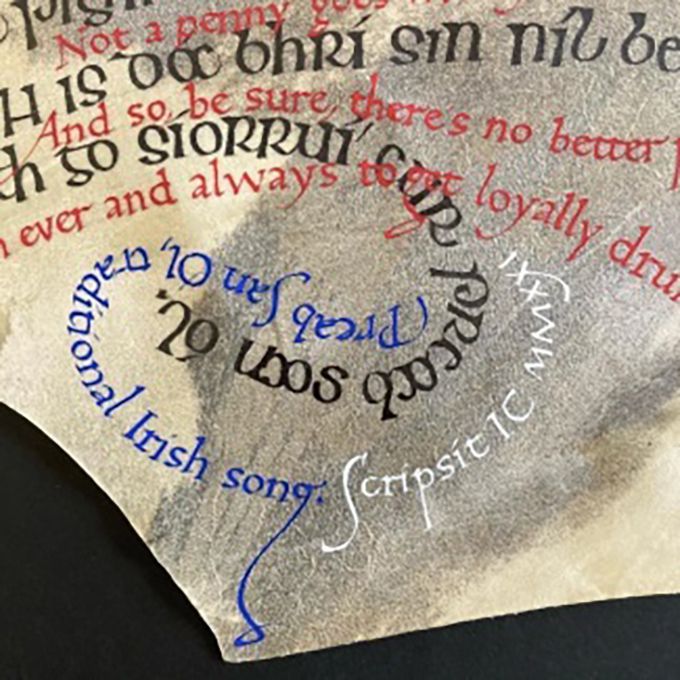 Not a penny goes
H is da bhrí sin níl be
And so, be sure, there's no better
th go síorruí cur preab san ól.
ever and always to get loyally drun
(Preab San Ól, a traditional Irish song.
Scripsit IC MMXXI